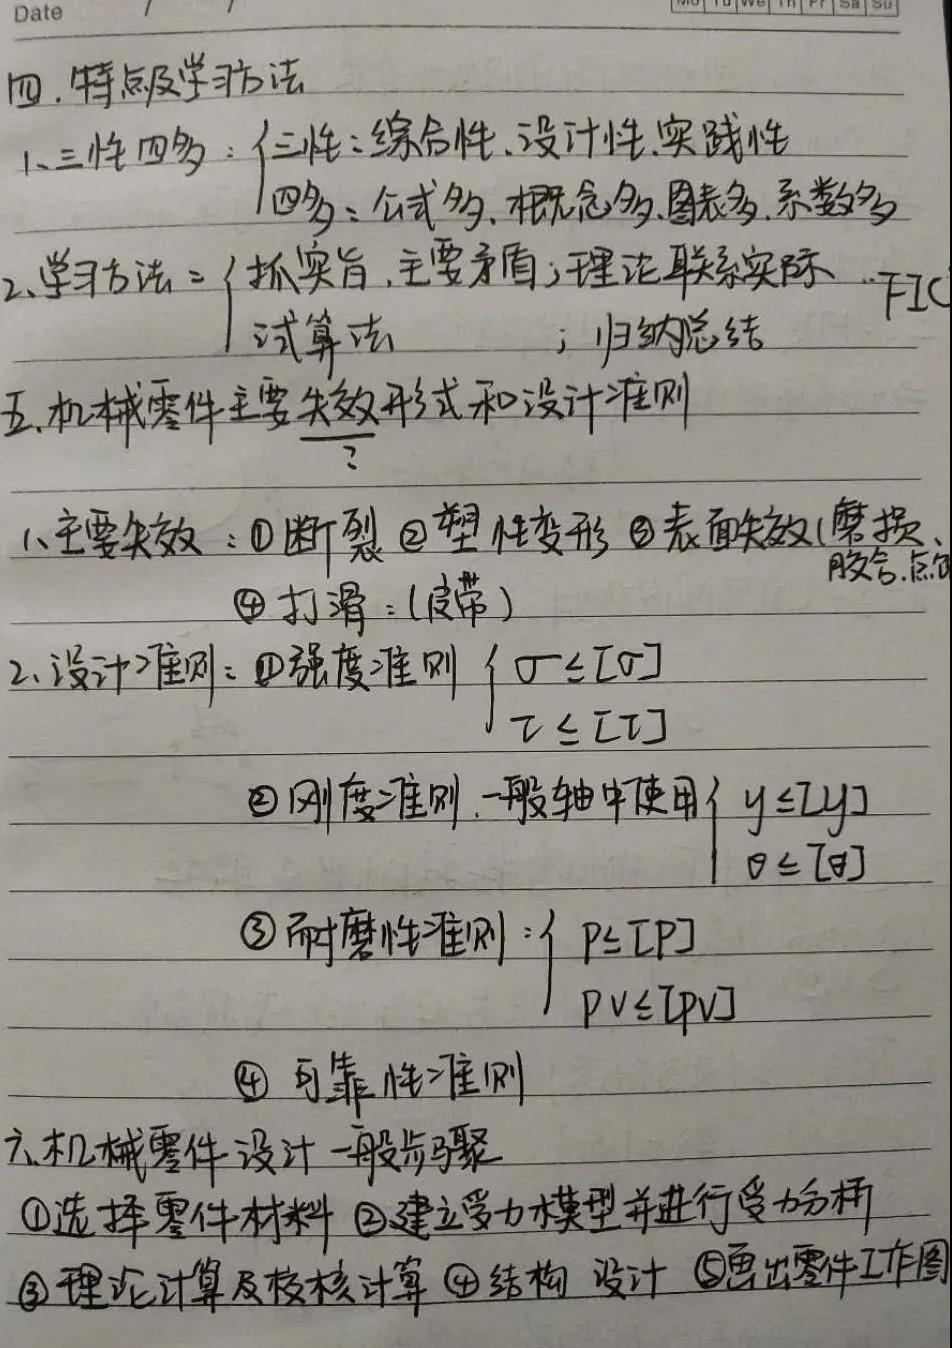 Date / /
Mo Tu We Th Fr Sa Su
四.特点及学习方法
1、三性四多：{三性：综合性、设计性、实践性
四多：公式多、概念多、图表多、系数多
2、学习方法={抓实旨、主要矛盾；理论联系实际
试算法 ；归纳总结
五.机械零件主要失效形式和设计准则
?
1、主要失效：①断裂 ②塑性变形 ③表面失效(磨损、
胶合、点
④打滑：(皮带)
2、设计准则：①强度准则 { σ≤[σ]
τ≤[τ]
②刚度准则、一般轴中使用{ y≤[y]
θ≤[θ]
③耐磨性准则：{ P≤[P]
PV≤[PV]
④可靠性准则
六.机械零件设计一般步骤
①选择零件材料 ②建立受力模型并进行受力分析
③理论计算及校核计算 ④结构设计 ⑤画出零件工作图